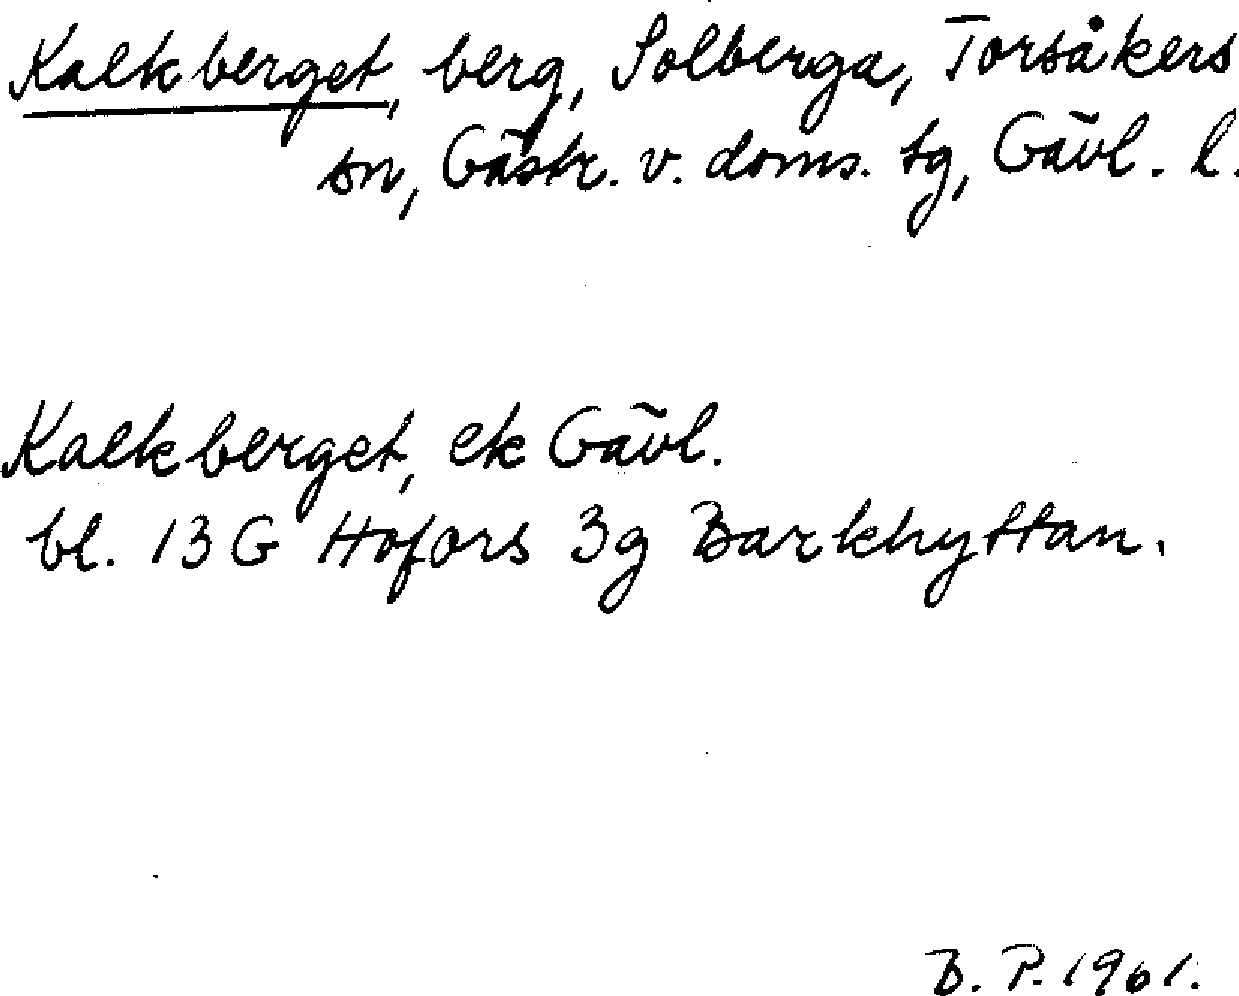 Kalkberget, berg, Solberga, Torsåkers
sn, Gästr. v. doms. tg, Gävl. l.
Kalkberget, ek Gävl.
bl. 13 G Hofors 3g Barkhyttan.
B. P. 1961.